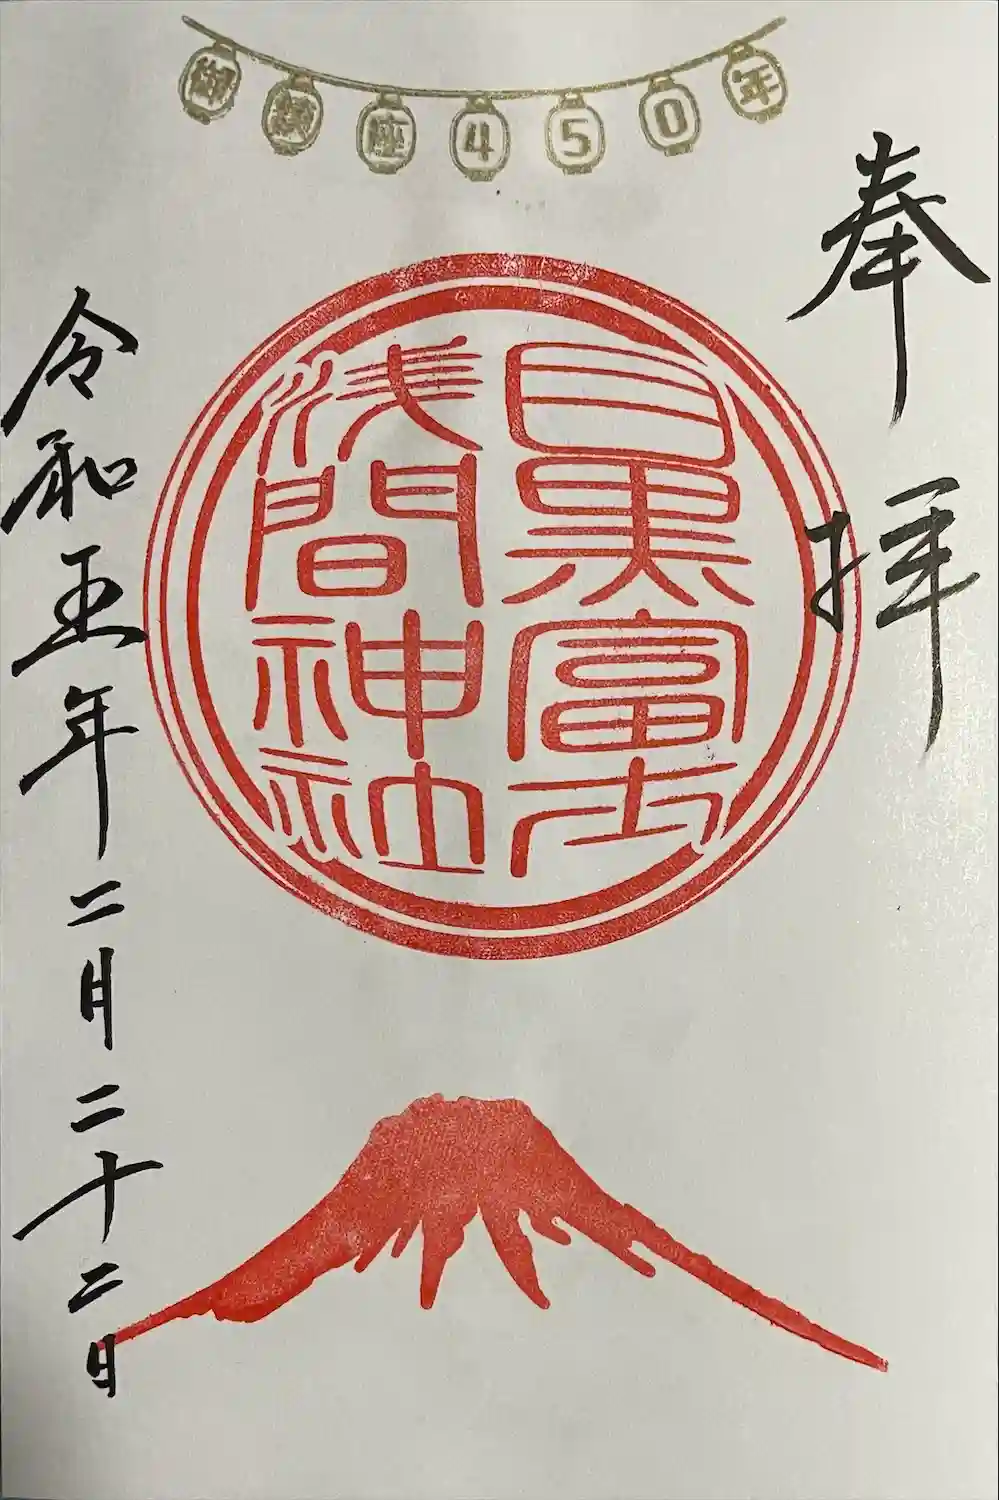 御鎮座450年
奉拝
目黒富士
浅間神社
令和五年二月二十二日